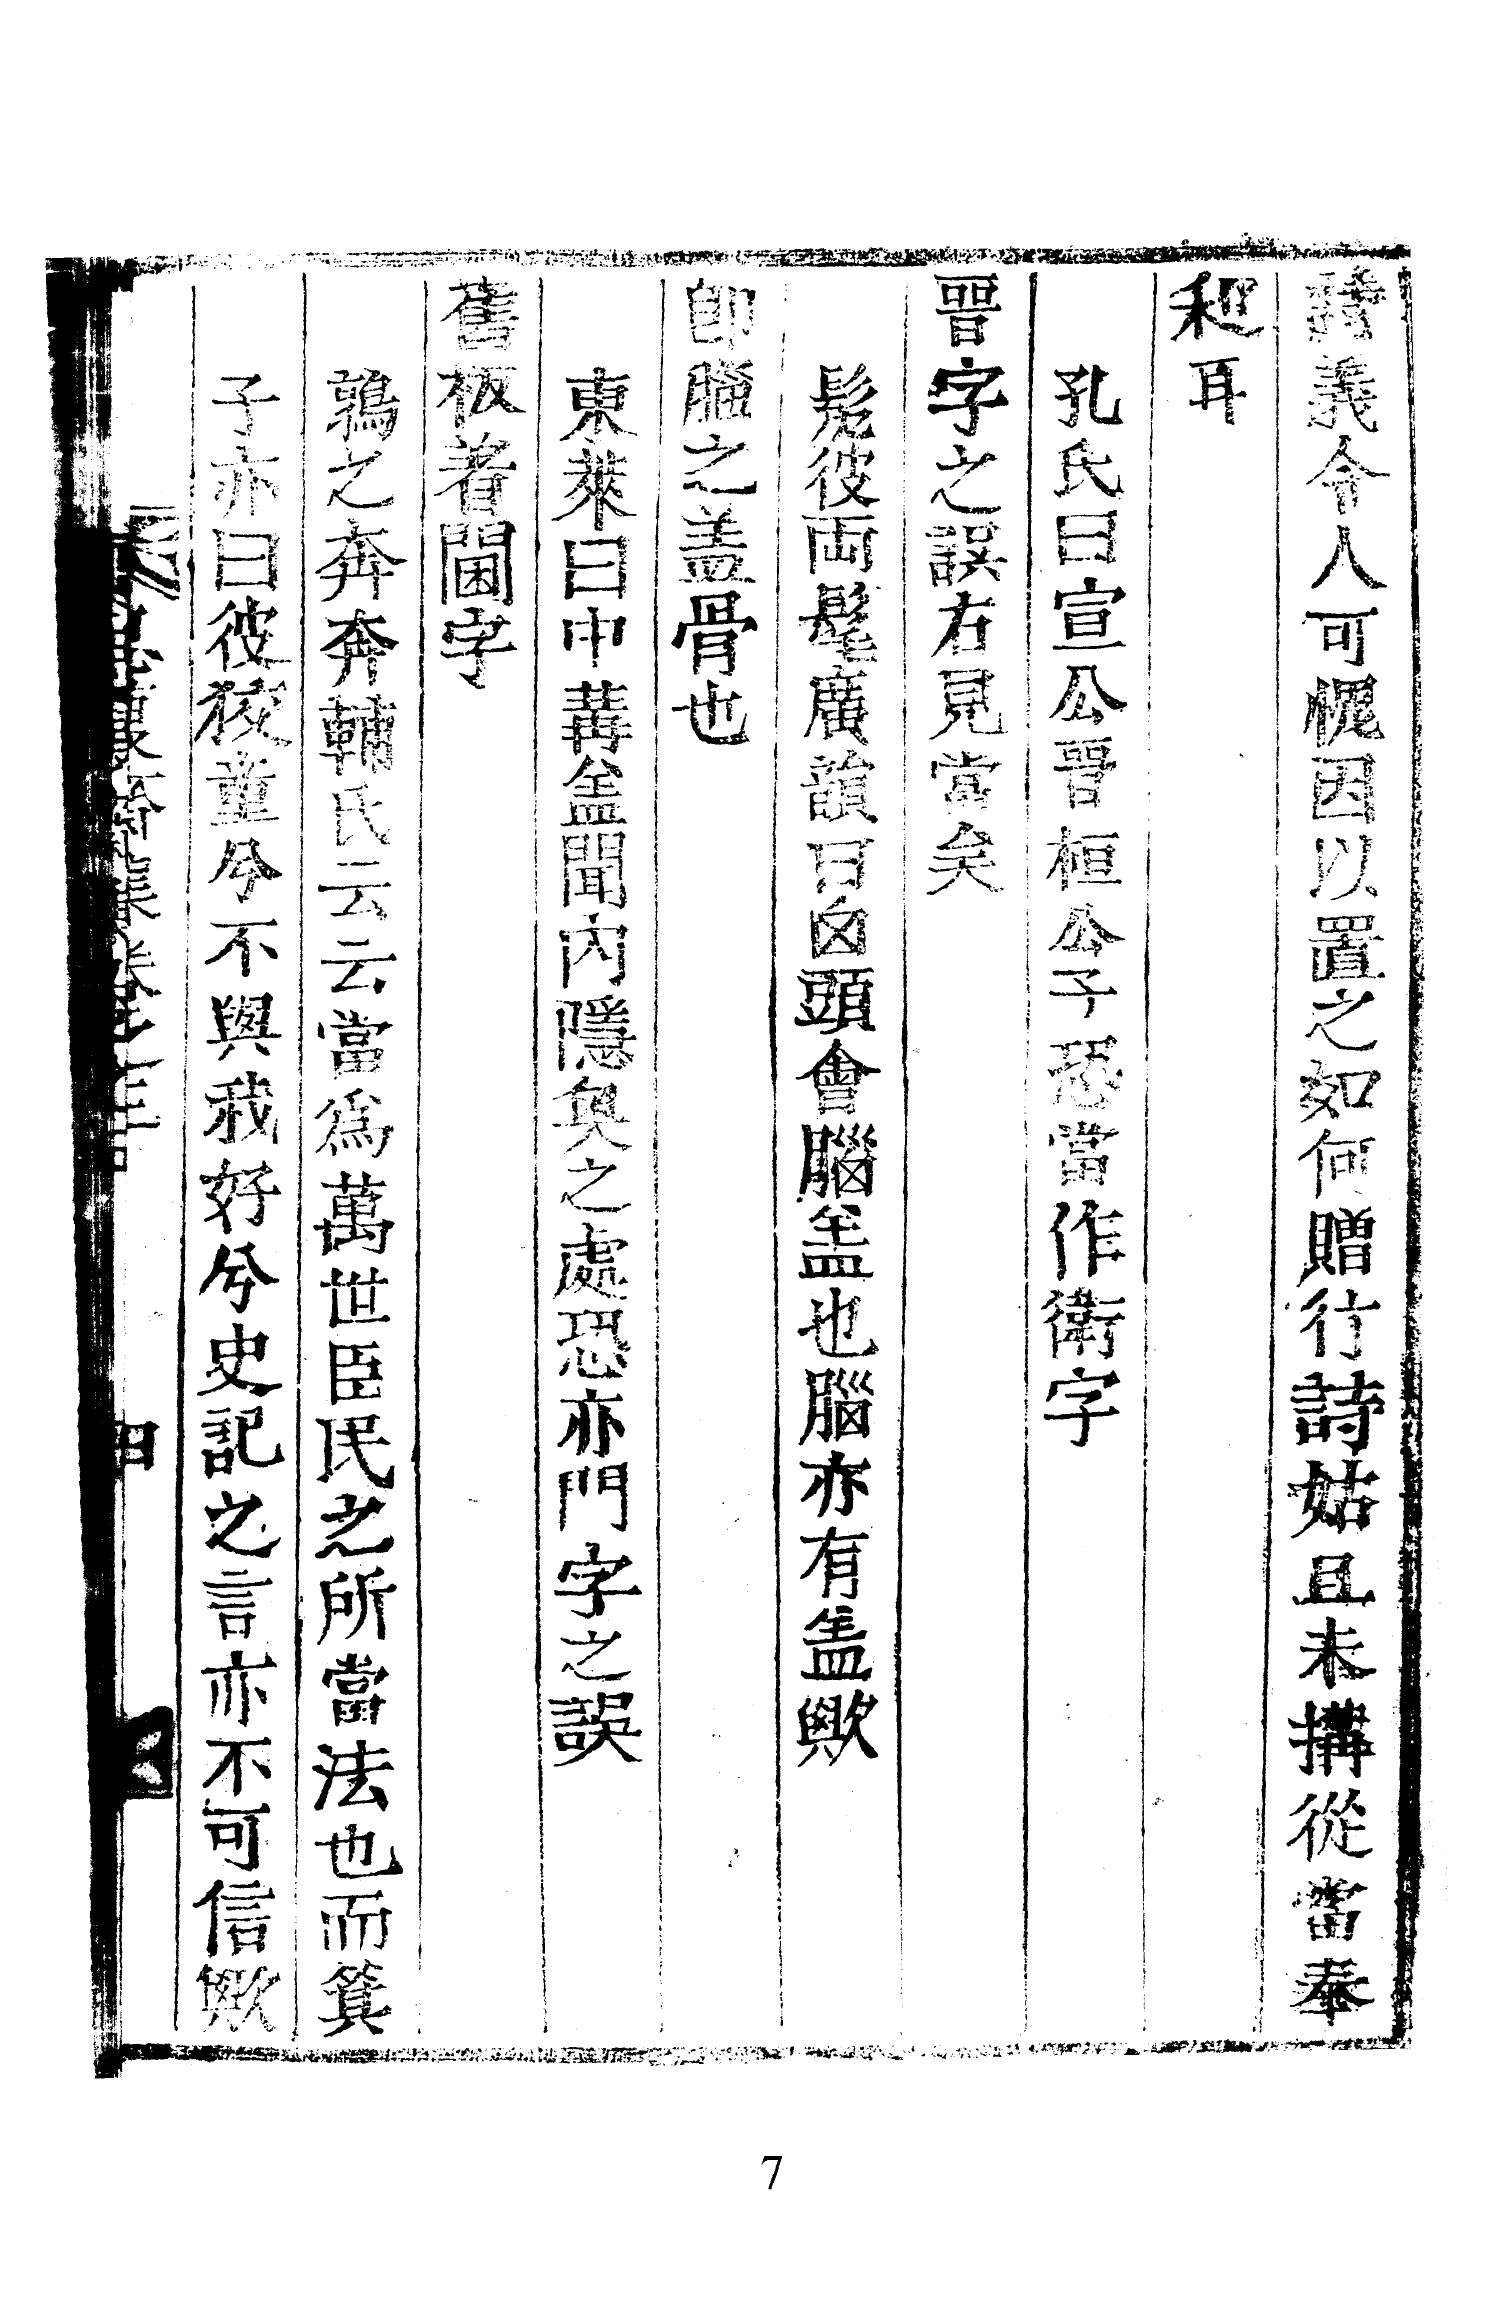 詩義令人可愧因以置之如何贈行詩姑且未搆從當奉
耳
孔氏曰宣公晋桓公子恐當作衛字
晋字之誤右見當矣
髧彼両髦廣韻曰囟頭會腦盖也腦亦有盖歟
即腦之盖骨也
東萊曰中冓盖閫內隱奧之處恐亦門字之誤
舊板著閫字
鶉之奔奔輔氏云云當爲萬世臣民之所當法也而箕
子亦曰彼狡童兮不與我好兮史記之言亦不可信歟
7